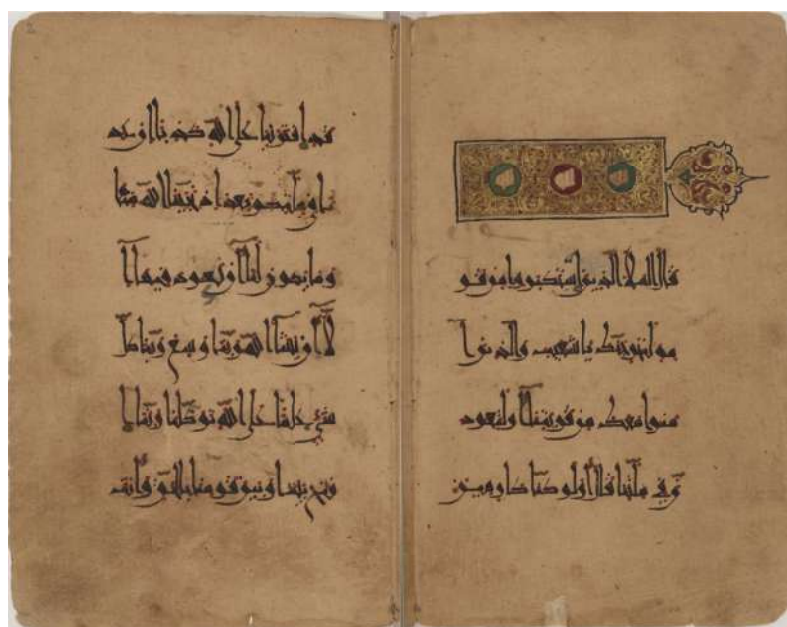 قال الملا الذين استكبروا من قو
مه لنخرجنك يا شعيب والذين ا
منوا معك من قريتنا او لتعود
ن في ملتنا قال اولو كنا كارهين
قد افترينا على الله كذبا ان عد
نا في ملتكم بعد اذ نجينا الله منها
وما يكون لنا ان نعود فيها ا
لا ان يشا الله ربنا وسع ربنا كل
شئ علما على الله توكلنا ربنا ا
فتح بيننا وبين قومنا بالحق وانت